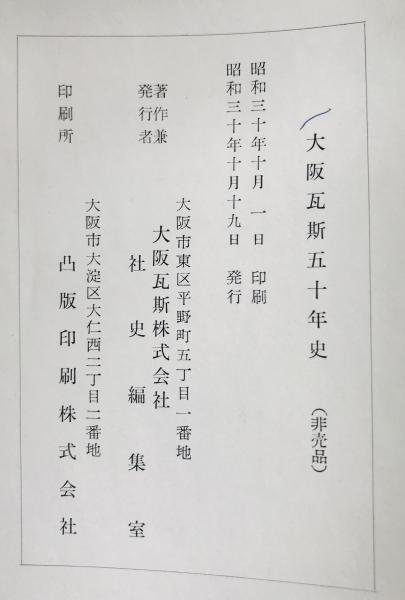 大阪瓦斯五十年史 (非売品)
昭和三十年十月 一日 印刷
昭和三十年十月十九日 発行
著作兼
発行者
大阪市東区平野町五丁目一番地
大阪瓦斯株式会社
社史編集室
印刷所
大阪市大淀区大仁西二丁目二番地
凸版印刷株式会社